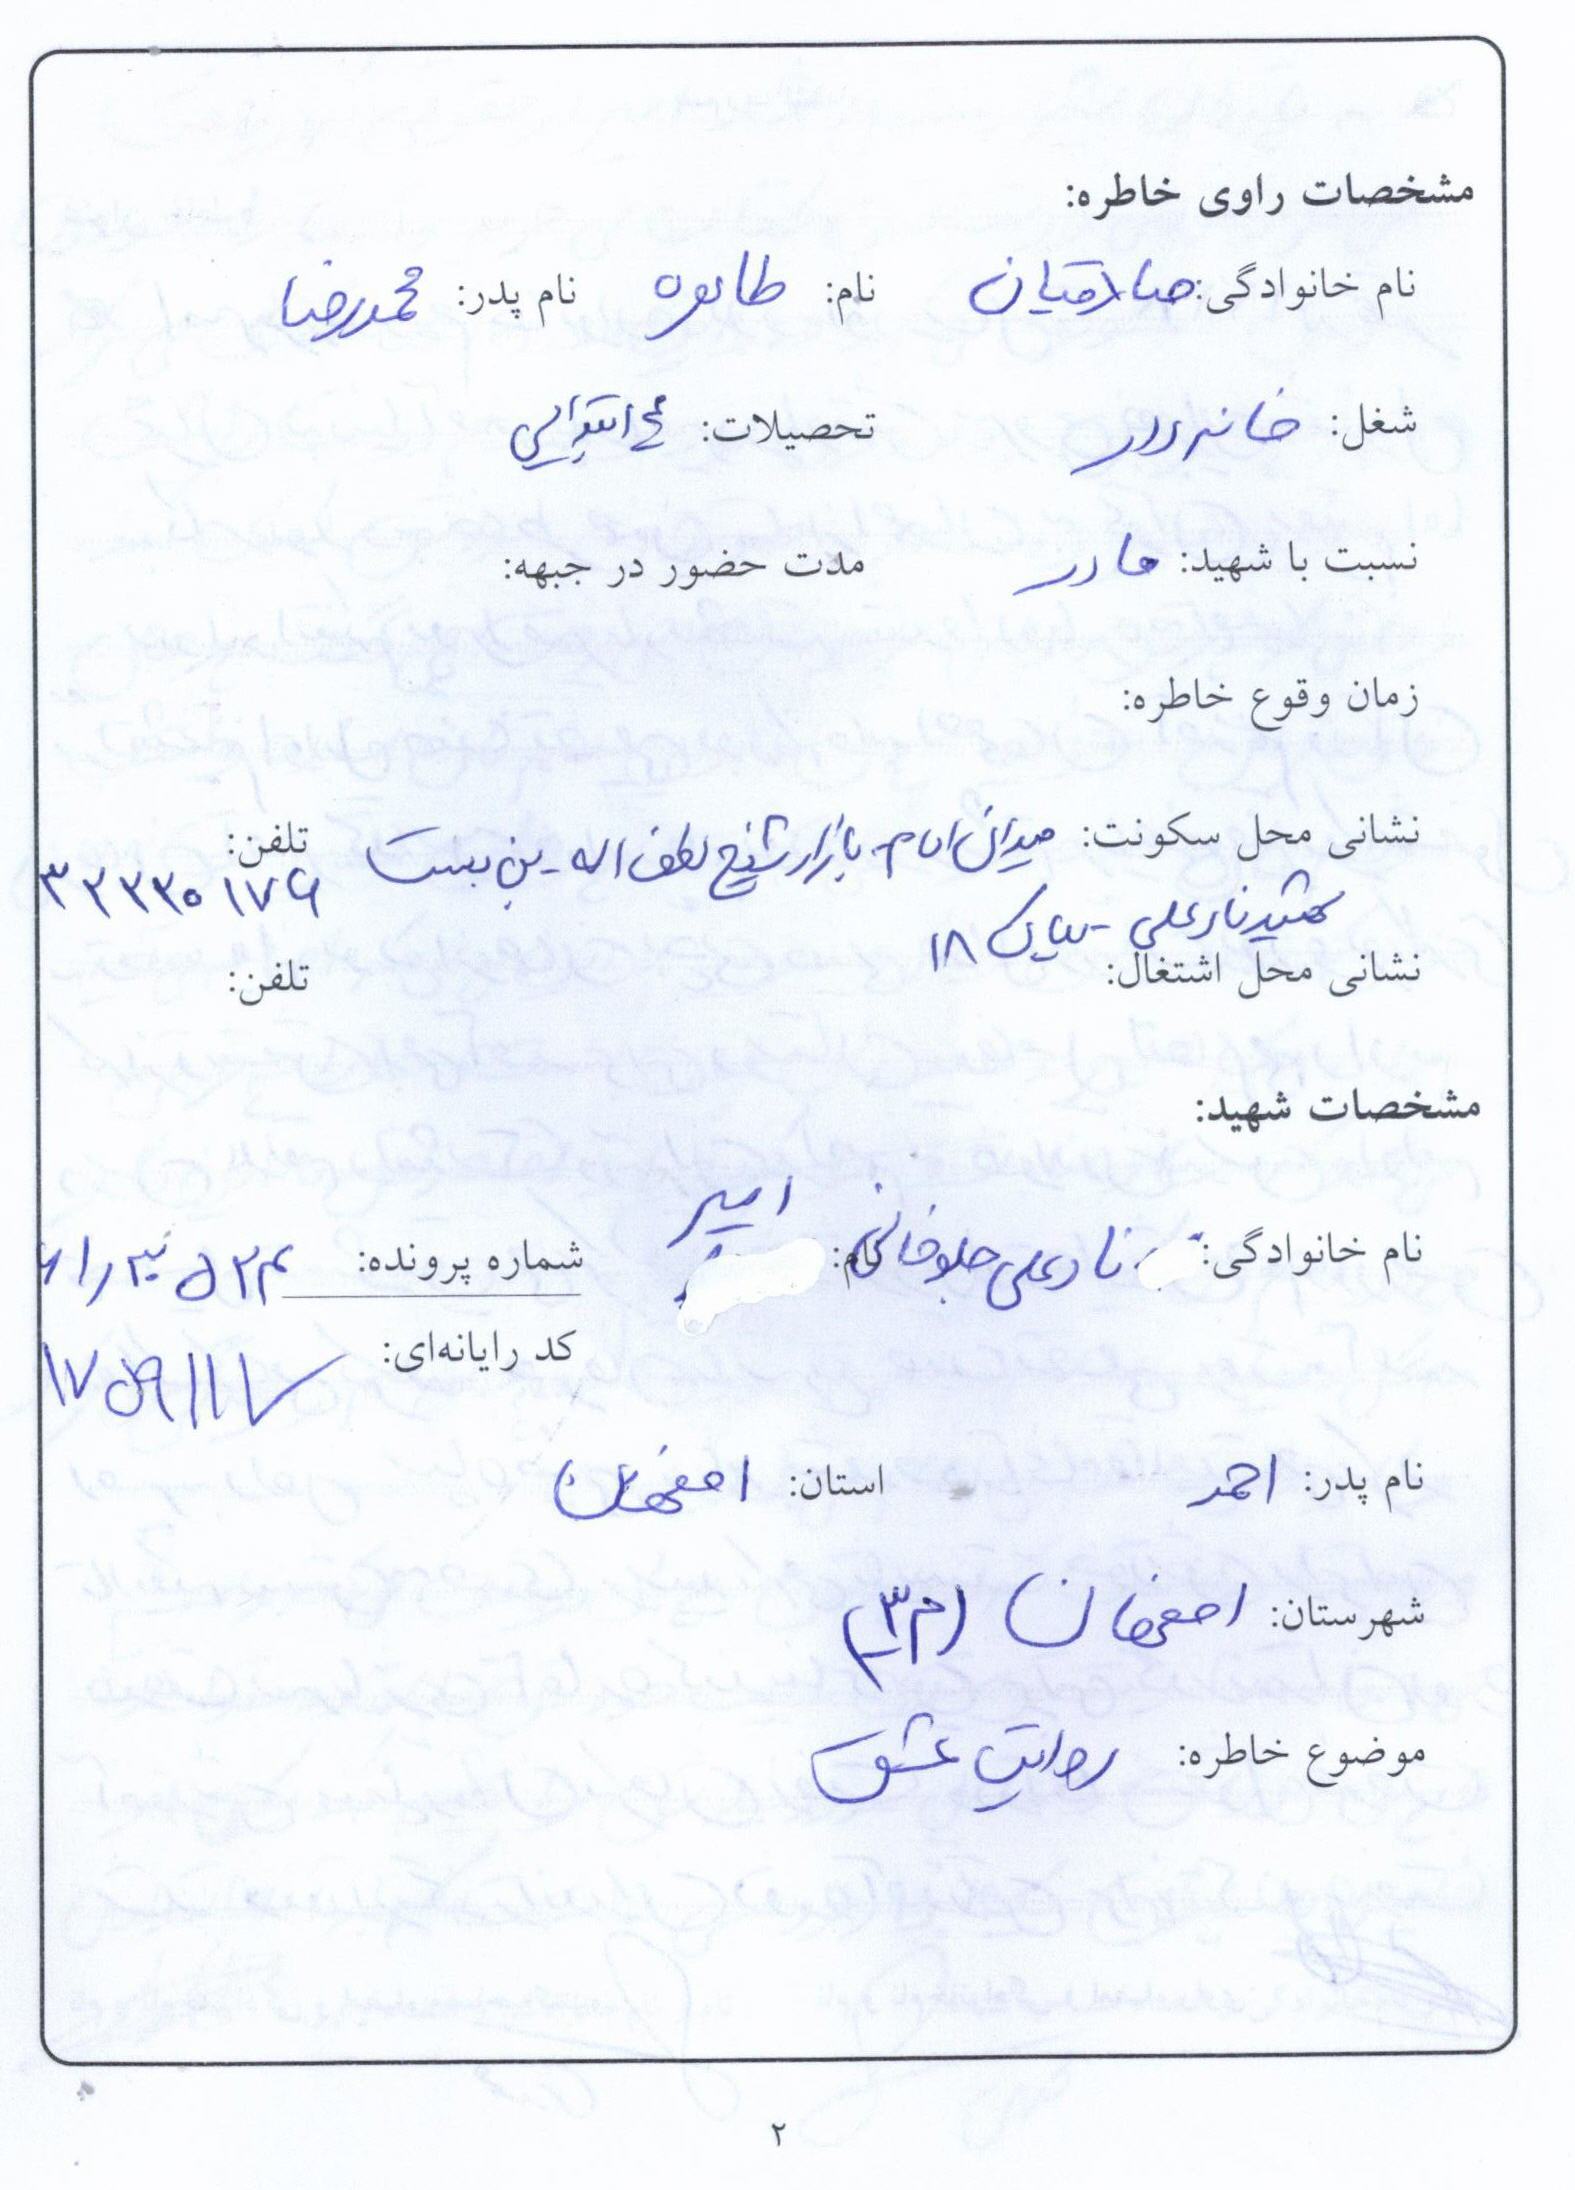 مشخصات راوی خاطره:
نام خانوادگی: صادقیان نام: طاهره نام پدر: محمدرضا
شغل: خانه دار تحصیلات: ابتدایی
نسبت با شهید: مادر مدت حضور در جبهه:
زمان وقوع خاطره:
نشانی محل سکونت: میدان امام - بازار شیخ لطف اله - بن بست تلفن:
شهید نادعلی - پلاک ۱۸ ۳۲۲۳۰۱۷۶
نشانی محل اشتغال: تلفن:
مشخصات شهید:
نام خانوادگی: نادعلی جلوخانی نام: امیر شماره پرونده:
کد رایانه‌ای:
نام پدر: احمد استان: اصفهان
شهرستان: اصفهان (م۳)
موضوع خاطره: روایت عشق
۲